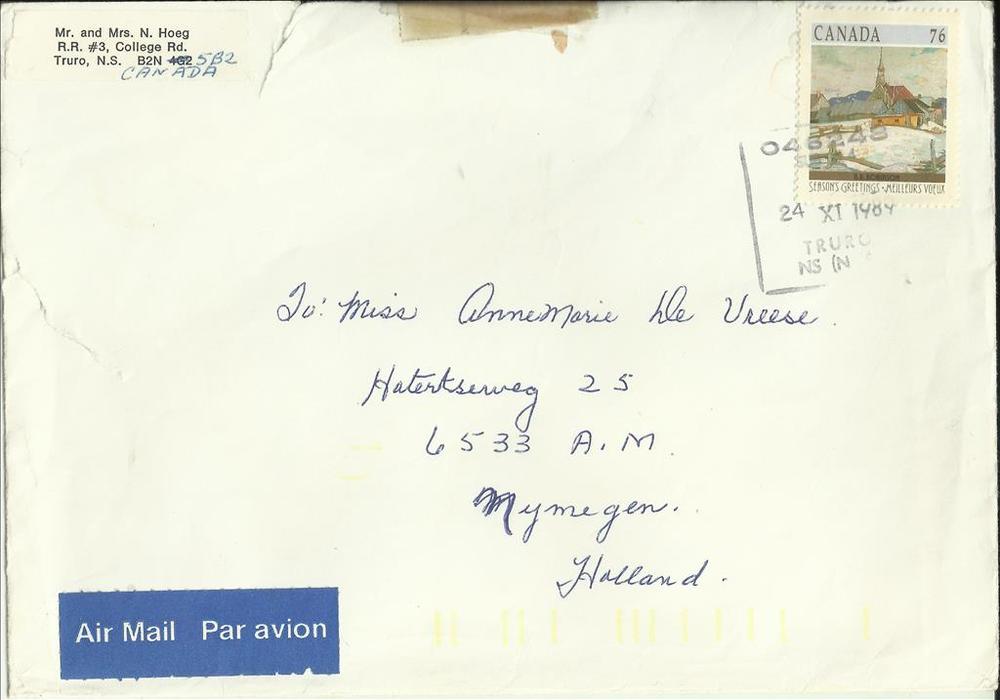 Mr. and Mrs. N. Hoeg
R.R. #3, College Rd.
Truro, N.S. B2N 4G2 5B2
CANADA
CANADA 76
SEASON'S GREETINGS • MEILLEURS VOEUX
24 XI 1989
TRURO
NS (N
To: Miss AnneMarie De Vreese.
Hatertseweg 25
6533 A.M.
Mymegen.
Holland.
Air Mail Par avion